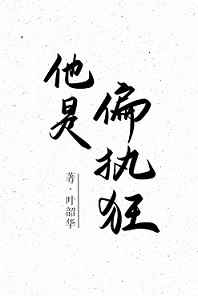 他是
偏执狂
著·叶韶华